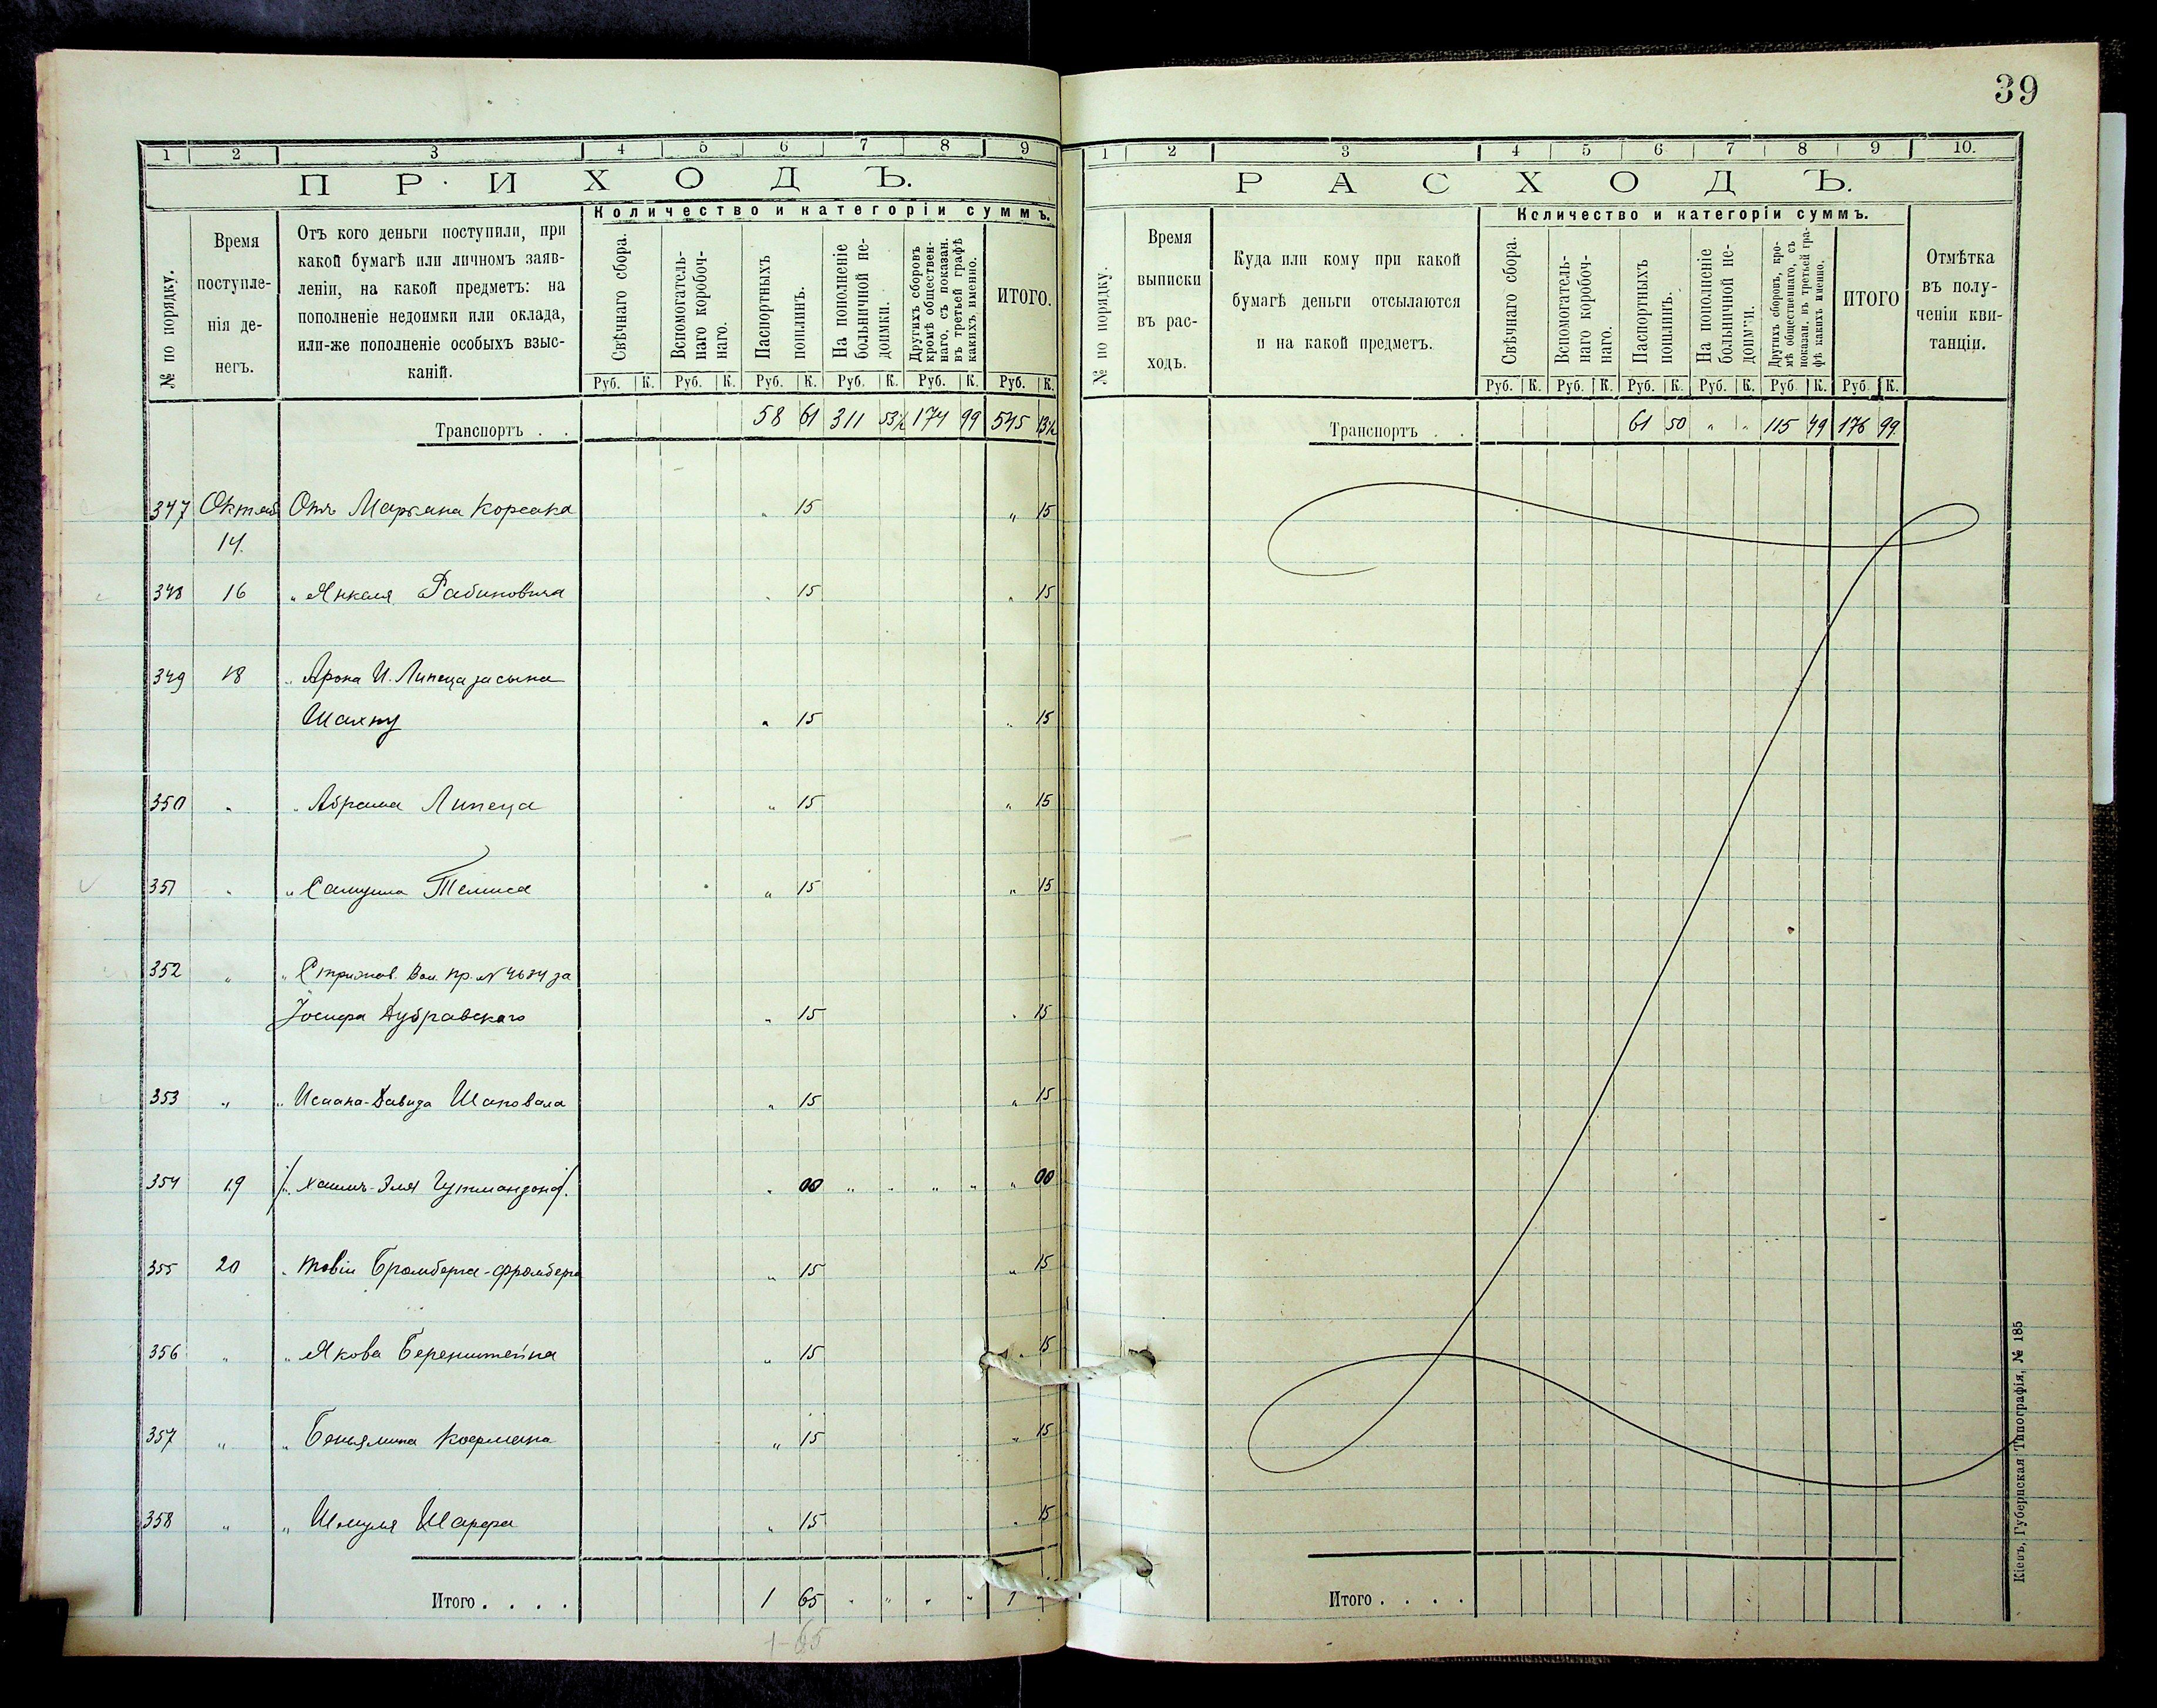 39
1 2 3 4 5 6 7 8 9
ПРИХОДЪ.
Количество и категоріи суммъ.
№ по порядку.
Время
поступле-
нія де-
негъ.
Отъ кого деньги поступили, при
какой бумагѣ или личномъ заяв-
леніи, на какой предметъ: на
пополненіе недоимки или оклада,
или-же пополненіе особыхъ взыс-
каній.
Свѣчнаго сбора.
Вспомогатель-
наго коробоч-
наго.
Паспортныхъ
пошлинъ.
На пополненіе
больничной не-
доимки.
Другихъ сборовъ
кромѣ обществен-
наго, съ показан.
въ третьей графѣ
какихъ именно.
ИТОГО.
Руб. К. Руб. К. Руб. К. Руб. К. Руб. К. Руб. К.
Транспортъ . . 58 61 311 53½ 174 99 545 13½
347 Октяб Отъ Маркана Корсака „ 15 „ 15
14.
348 16 „ Янкеля Рабиновича „ 15 „ 15
349 18 „ Арона И. Липеца за сына
Шахну „ 15 „ 15
350 „ „ Абрама Липеца „ 15 „ 15
351 „ „ Самуила „ 15 „ 15
352 „ „ Вол. пр. № за
Іосифа Дубравскаго „ 15 „ 15
353 „ „ Исаака-Давида Шаповала „ 15 „ 15
354 19 /„ Хаимъ-Эля /. „ 00 „ „ „ „ „ 00
355 20 „ Товіи Бромберга-Фромберга „ 15 „ 15
356 „ „ Якова Беренштейна „ 15 „ 15
357 „ „ Беньямина Кофмана „ 15 „ 15
358 „ „ Шмуля Шарфа „ 15 „ 15
Итого . . . . 1 65 „ „ „ „ 1
1-65
1 2 3 4 5 6 7 8 9 10.
РАСХОДЪ.
Количество и категоріи суммъ.
№ по порядку.
Время
выписки
въ рас-
ходъ.
Куда или кому при какой
бумагѣ деньги отсылаются
и на какой предметъ.
Свѣчнаго сбора.
Вспомогатель-
наго коробоч-
наго.
Паспортныхъ
пошлинъ.
На пополненіе
больничной не-
доимки.
Другихъ сборовъ, кро-
мѣ общественнаго, съ
показан. въ третьей гра-
фѣ какихъ именно.
ИТОГО
Отмѣтка
въ полу-
ченіи кви-
танціи.
Руб. К. Руб. К. Руб. К. Руб. К. Руб. К. Руб. К.
Транспортъ . . 61 50 „ „ 115 49 176 99
Итого . . . .
Кіевъ, Губернская Типографія, № 185